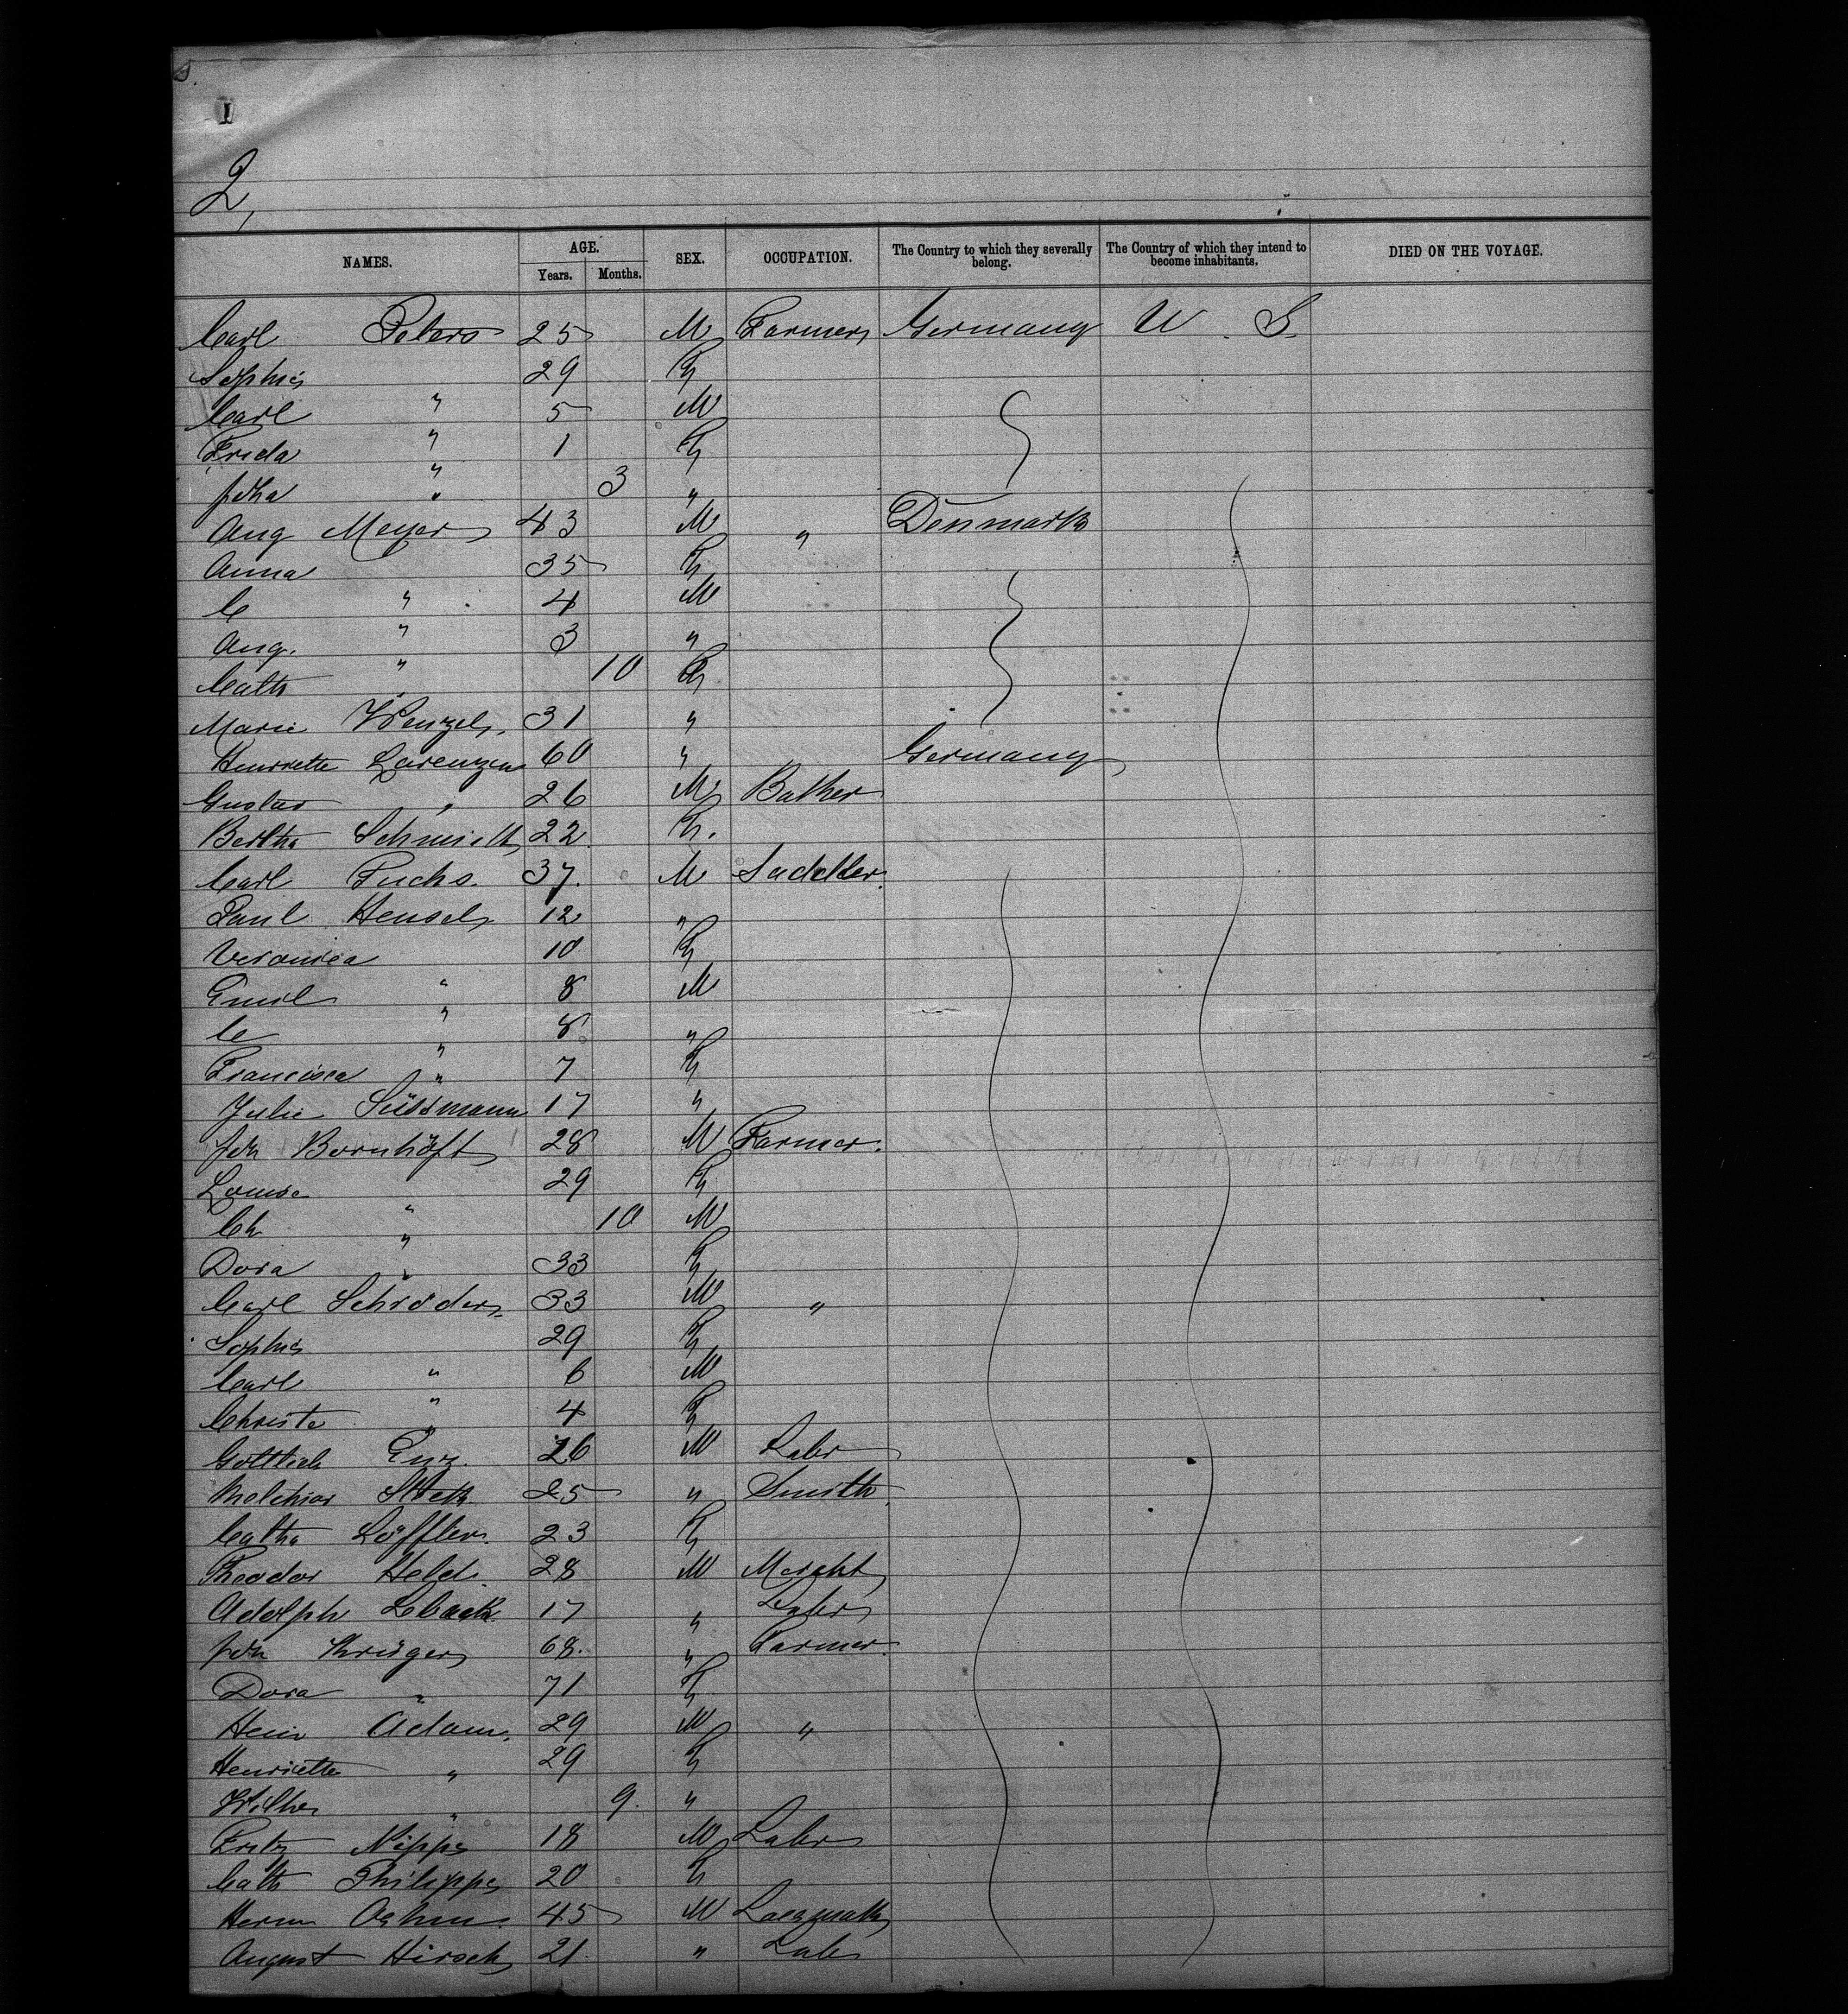 1
2,
NAMES. AGE. SEX. OCCUPATION. The Country to which they severally belong. The Country of which they intend to become inhabitants. DIED ON THE VOYAGE.
Years. Months.
Carl Peters 25 M Farmer Germany U. S.
Sophie 29 F
Carl " 5 M
Frida " 1 F
Joha " 3 "
Aug Meyer 43 M " Denmark
Anna 35 F
C " 4 M
Aug. " 3 "
Cath " 10 F
Marie Wenzel 31 "
Henriette Lorenzen 60 " Germany
Gustav " 26 M Bather
Bertha Schmidt 22 F.
Carl Fuchs. 37. M Saddler.
Paul Hensel 12 "
Veronica 10 F
Emil " 8 M
C " 8 "
Francisca " 7 F
Julie Süssmann 17 "
Joh Bornhöft 28 M Farmer.
Louise 29 F
Ch " 10 M
Dora " 33 F
Carl Schröder 33 M "
Sophie 29 F
Carl " 6 M
Christe " 4 F
Gottlieb Enz. 26 M Labr
Melchior 25 " Smith
Catha Löffler. 23 F
Theodor Held. 28 M Mercht
Adolph 17 " Labr
Joh Krüger 68. " Farmer.
Dora " 71 F
Heinr Adam. 29 M "
Henriette " 29 F
Wilhe " 9. "
Fritz Nippe 18 M Labr
Cath Philippe 20 F
Herm 45 M
August Hirsch 21. " Lab